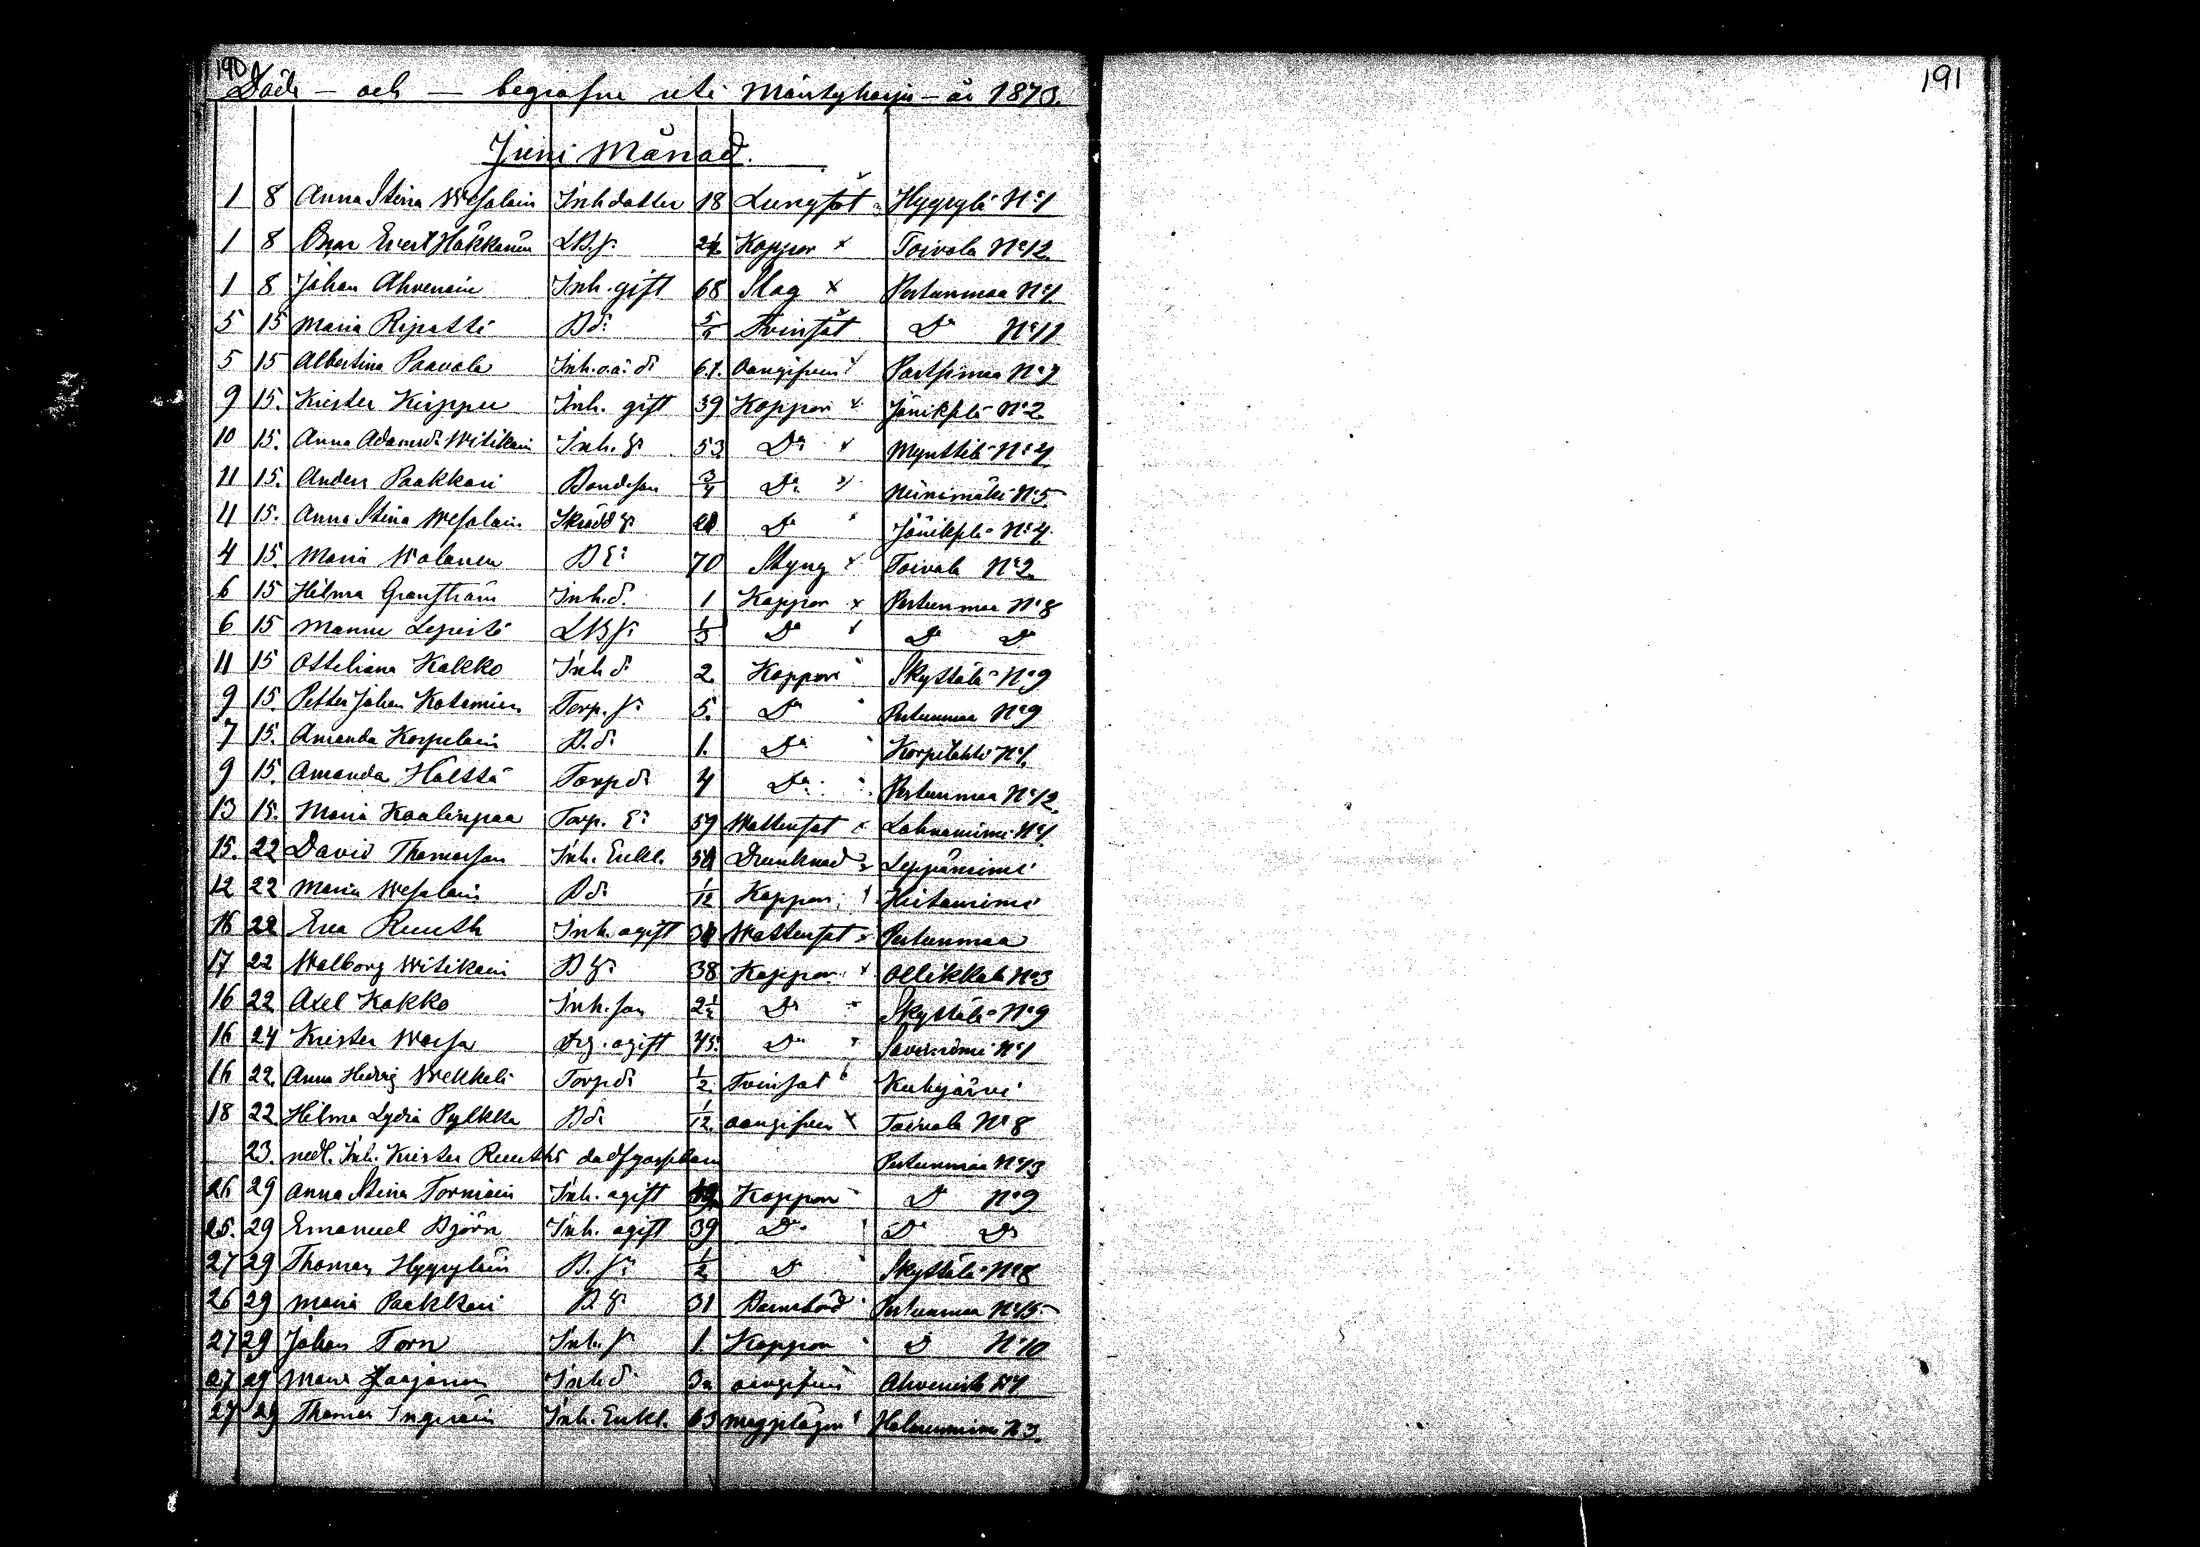 190
191
Döde - och - begrafne uti Mäntyharju - år 1873.
Juni Månad.
1 8 Anna Stina Wesalain Inh dotter 18 Lungsot Hyyrylä No 1
1 8 Oskar Evert Häkkänen LB. s. Koppor x Toivola No 12
1 8 Johan Ahvenain Inh. gift 68 Slag x Pertunmaa No 1
5 15 Maria Ripatti B d: Tvinsot Do No 11
5 15 Albertina Paavola Inh. o.ä. d: oangifven No 7
9 15. Krister Kirppu Inh. gift 39 Koppor x No 2
10 15. Anna Adamsd: Witikain Inh. h: 53 Do x Mynttilä No 4
11 15. Anders Paakkari Bondeson 3/4 Do Niinimäki No 5
11 15. Anna Stina Wesalain Skrädd h: Do No 4
4 15. Maria Walanen B E: 70 Styng x Toivola No 2
6 15 Hilma Granström Inh. d. 1 Koppor x Pertunmaa No 8
6 15 Mannu Lepistö LB s: 1/3 Do Do Do
11 15 Otteliana Kakko Inh d: 2 Koppor Skyttälä No 9
9 15. Petter Johan Torp. s: 5. Do Pertunmaa No 9
7 15. Amanda Korpelain B. d: 1. Do Korpilahti No 1
9 15. Amanda Halttä Torp d: 4 Do Pertunmaa No 12
13 15. Maria Kaalinpaa Torp. E: 59 Wattensot x Lahnaniemi No 1
15. 22 David Thomasson Inh. Enkl. Drunknad x Leppäniemi
12 22 Maria Wesalain B d: 1/12 Koppor Hietaniemi
16 22 Eva Ruuth Inh. ogift Wattensot x Pertunmaa
17 22 Walborg Witikain B h: 38 Koppor x Ollikkala No 3
16 22 Axel Kakko Inh. son 2 1/2 Do Skyttälä No 9
16 24 Krister ogift 45. Do No 1
16 22. Anna Hedvig Wekkeli Torp d: 1/2 Tvinsot Kuhajärvi
18 22 Hilma Lydia Pylkkä B d: 1/12 oangifven x Toivola No 8
23. nedl. Inh. Krister Ruuths dödfgosseban Pertunmaa No 13
26 29 Anna Stina Torniain Inh. ogift Koppor D No 9
25. 29 Emanuel Björn Inh. ogift 39 Do Do Do
27 29 Thomas Hyyryläin B. s: 1/2 D Skyttälä No 8
26 29 Maria Paakkari B. h: 31 Barnsbörd Pertunmaa No 15
27 29 Johan Torn Inh. s 1. Koppor D No 10
27 29 Maria Inh d: oangifven
27 29 Thomas Ingräin Inh. Enkl. 63 magplågor Halmeniemi No 3.